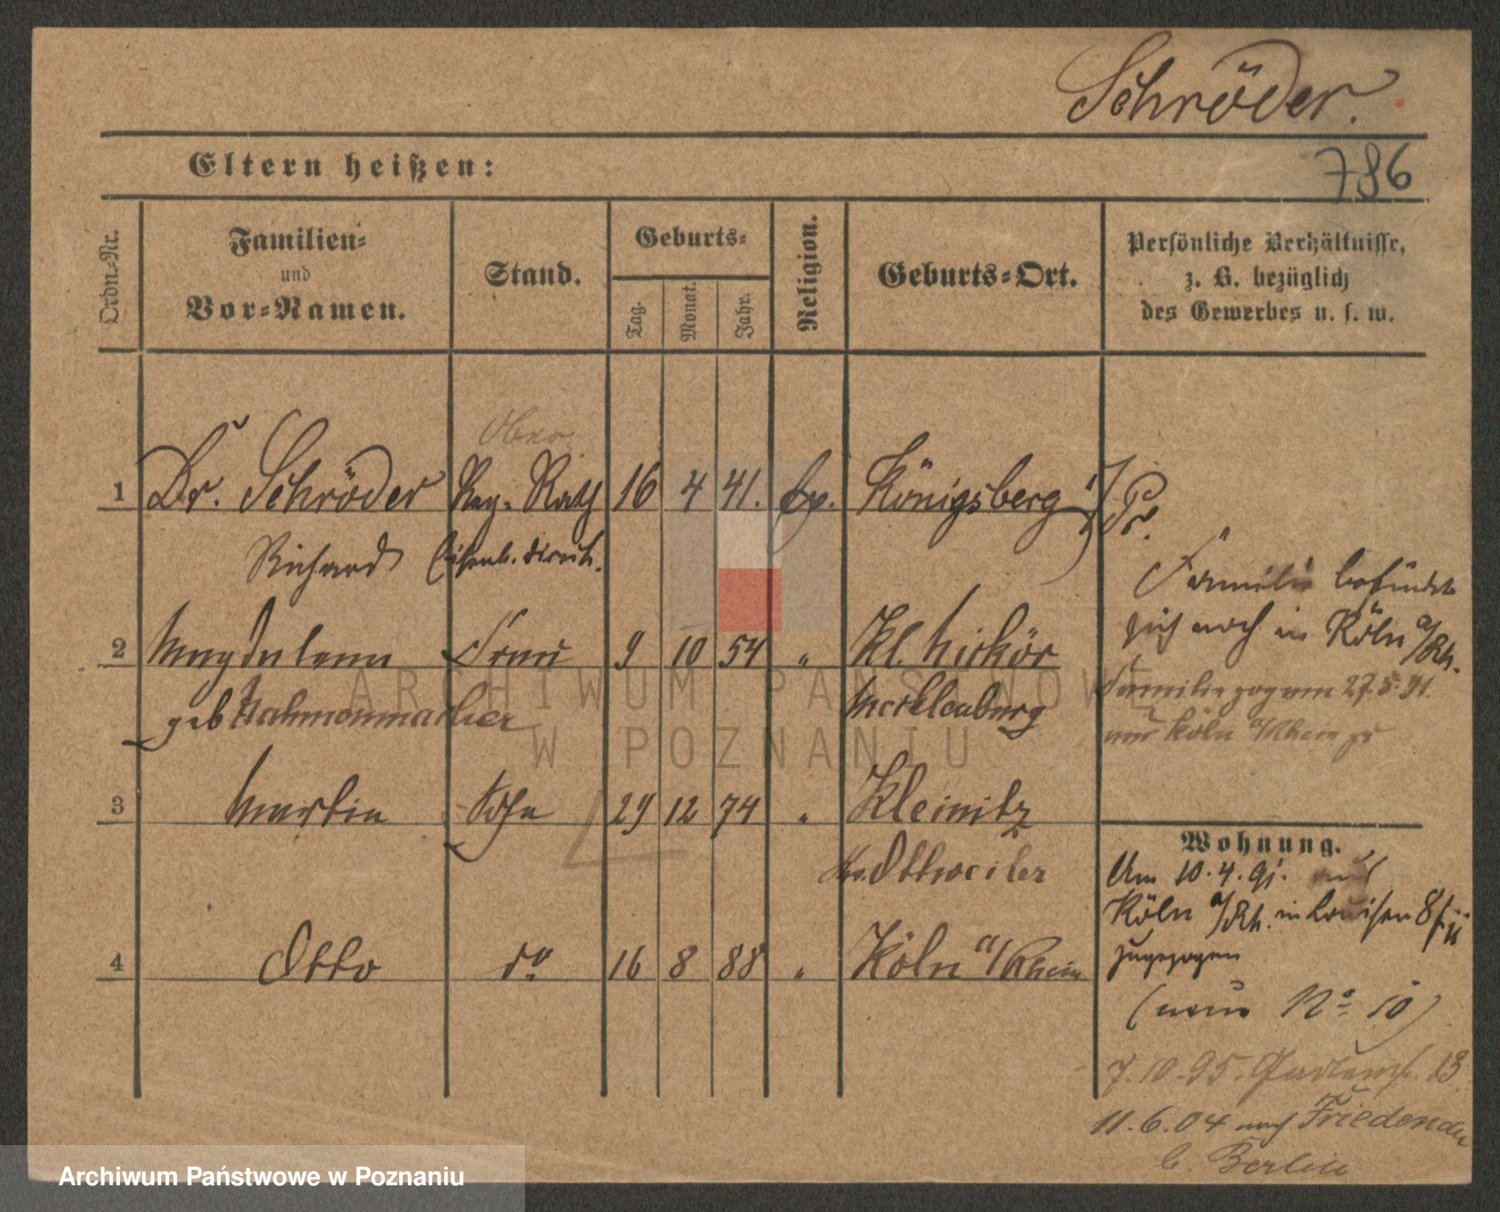 Schröder.
786
Eltern heißen:
Ordn.-Nr.
Familien-
und
Vor-Namen.
Stand.
Geburts-
Tag.
Monat.
Jahr.
Religion.
Geburts-Ort.
Persönliche Verhältnisse,
z. B. bezüglich
des Gewerbes u. s. w.
Ober
1 Dr. Schröder Reg. Rath 16 4 41. Ev. Königsberg i/Pr.
Richard Eisenb. Direkt.
Familie befindet
sich noch in Köln a/Rh.
2 Magdalena Frau 9 10 54 " Kl.
geb Hahmonmacher Mecklenburg
Familie zog am 27.5.91.
aus Köln a/Rhein zu
3 Martin Sohn 29 12 74 " Kleinitz
Kr. Ottweiler
4 Otto do 16 8 88 " Köln a/Rhein
Wohnung.
Am 10.4.91. aus
Köln a/Rh. in Louisen 8/II
zugezogen
(neue No 10)
7.10.95. 13
11.6.04 nach Friedenau
b. Berlin
ARCHIWUM PAŃSTWOWE
W POZNANIU
Archiwum Państwowe w Poznaniu